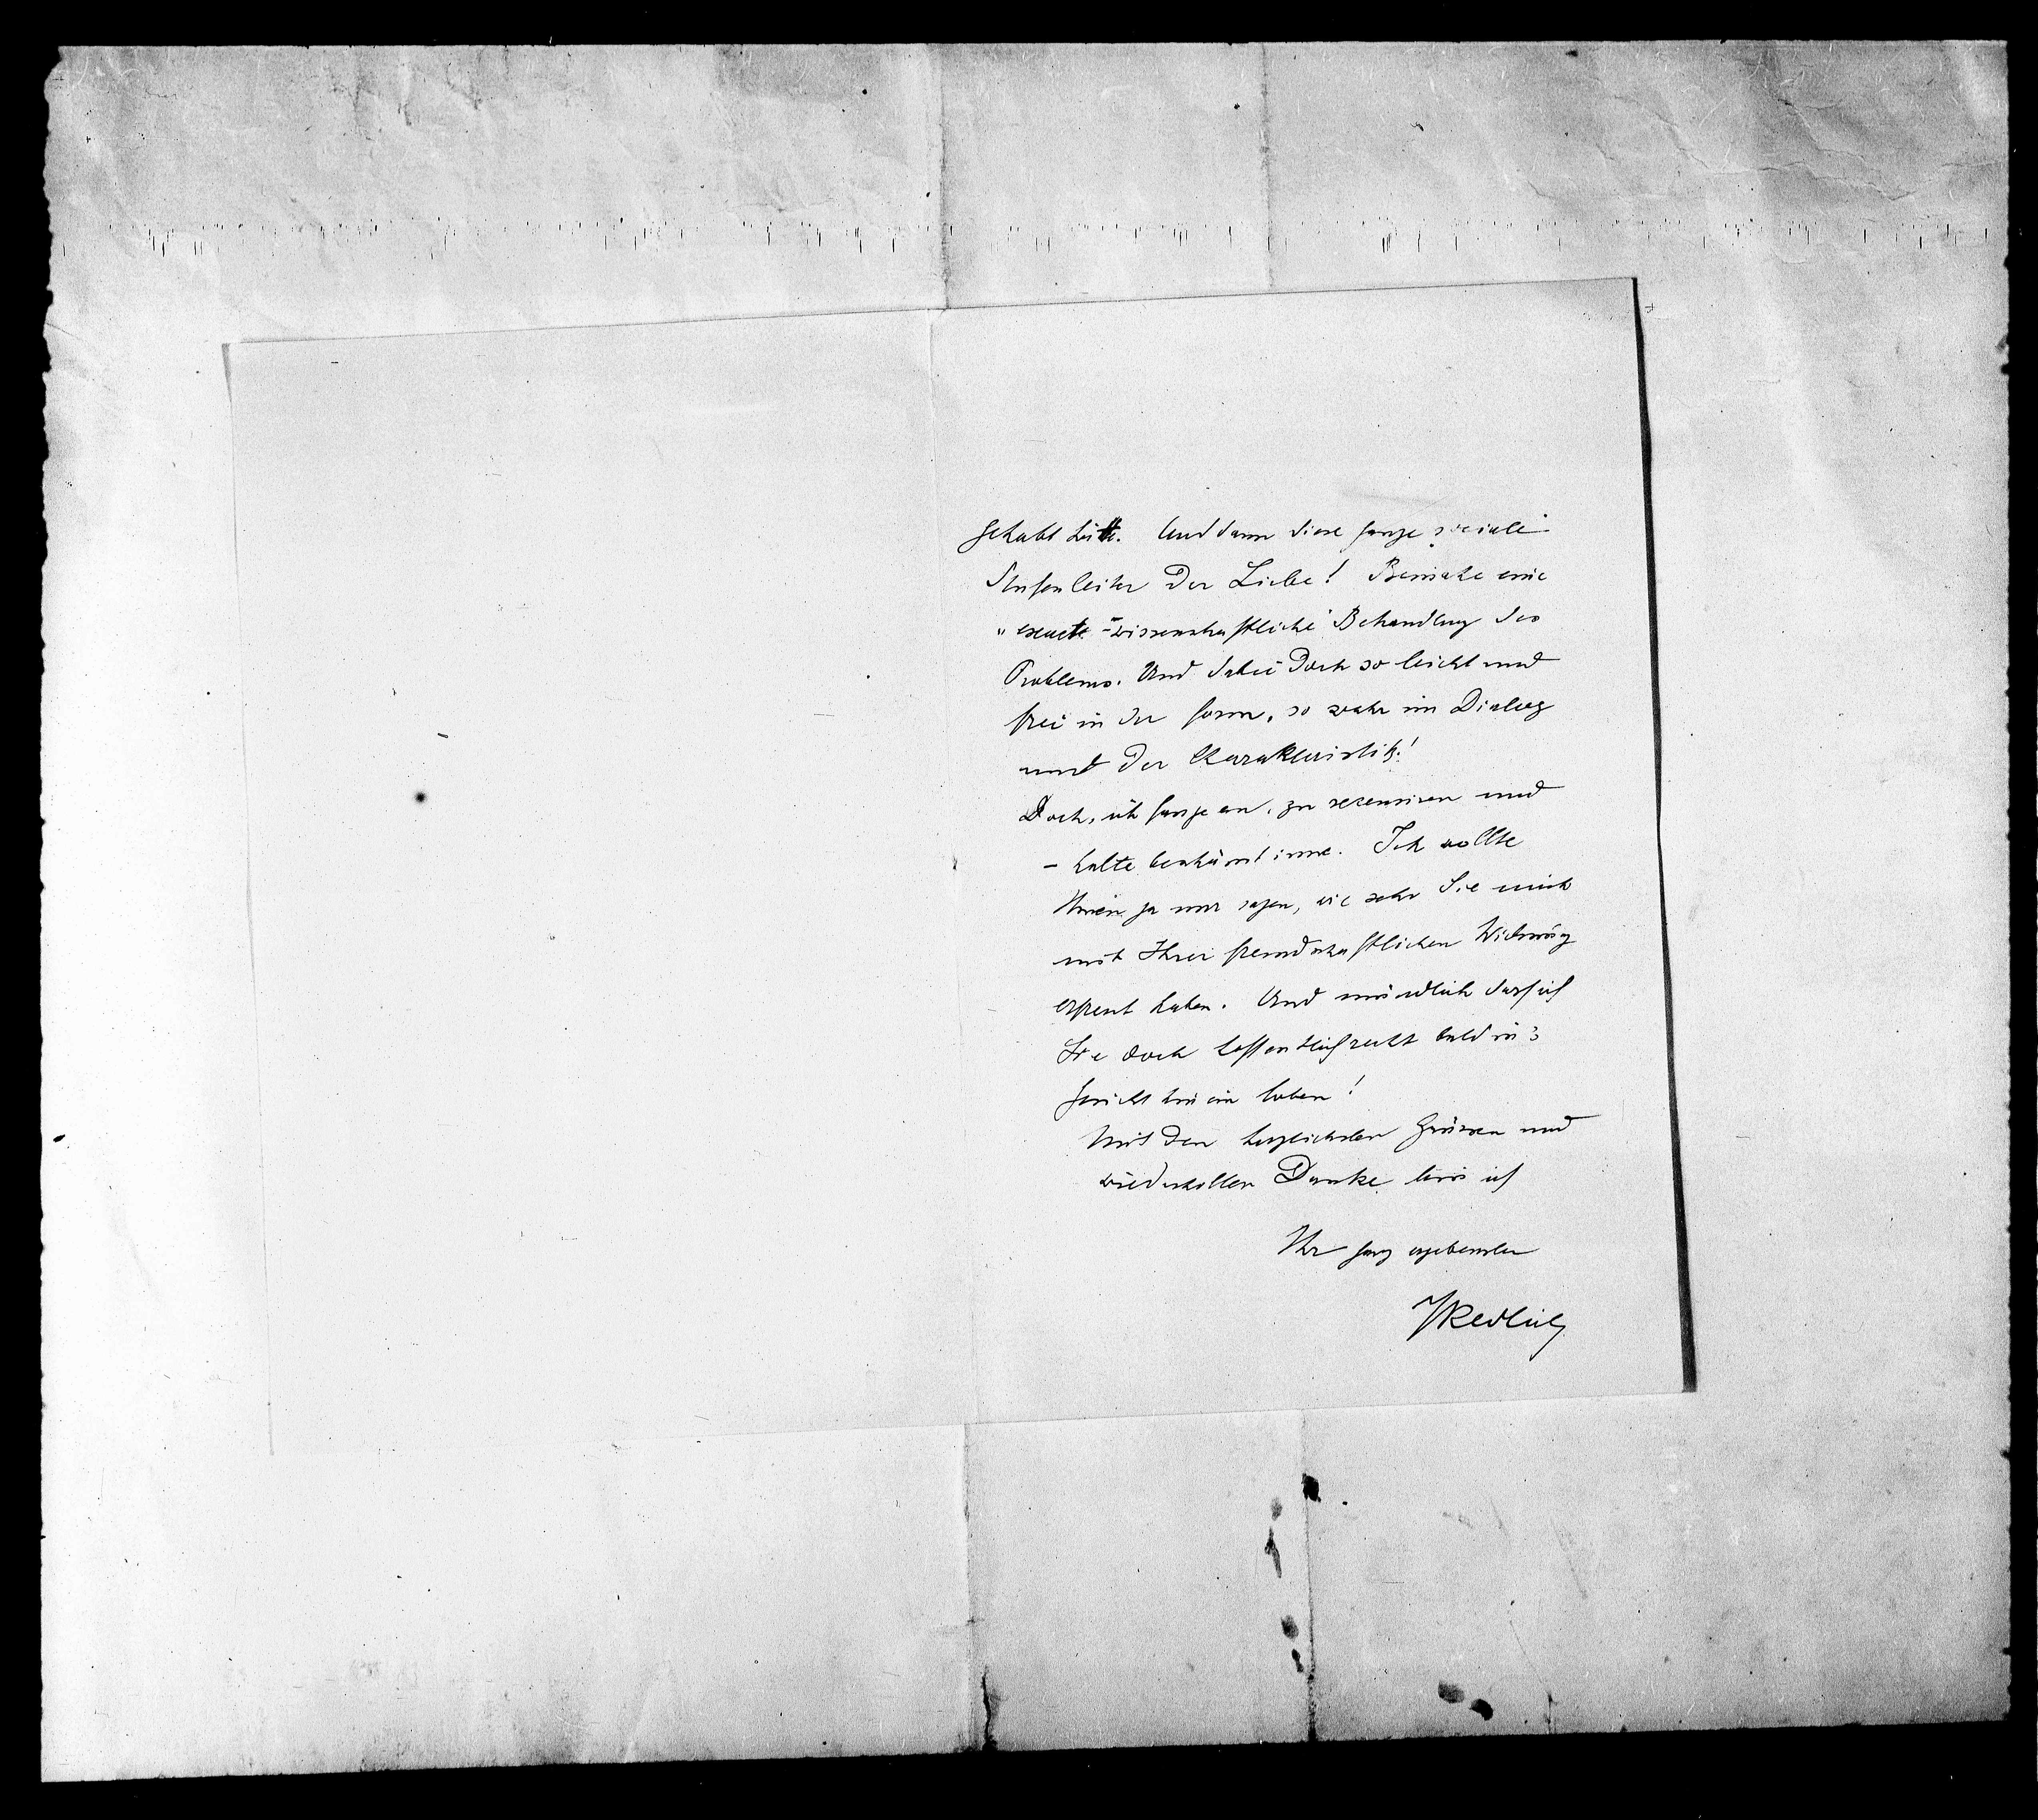 gehabt hätte. Und dann diese ganze sociale
Stufenleiter der Liebe! Beinahe eine
„exacte"-wissenschaftliche Behandlung des
Problems. Und dabei doch so leicht und
frei in der Form, so wahr im Dialog
und der Charakteristik!
Doch, ich fange an, zu recensiren und
– halte beschämt inne. Ich wollte
Ihnen ja nur sagen, wie sehr Sie mich
mit Ihrer freundschaftlichen Widmung
erfreut haben. Und mündlich darf ich
Sie doch hoffentlich recht bald in's
Gesicht hinein loben!
Mit den herzlichsten Grüssen und
wiederholten Danke bin ich
Ihr ganz ergebenster
JRedlich